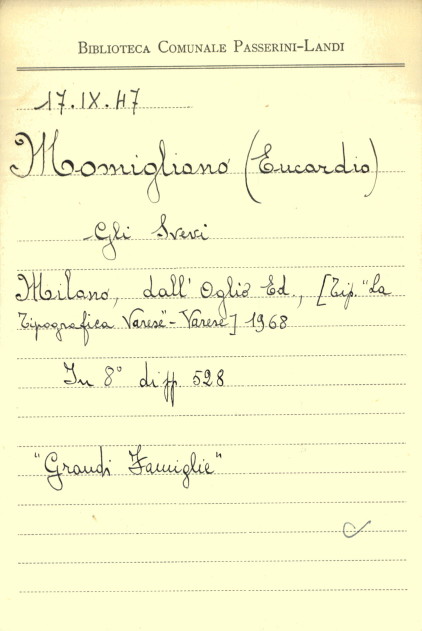 BIBLIOTECA COMUNALE PASSERINI-LANDI
17.IX.47
Momigliano (Eucardio)
Gli Svevi
Milano, dall'Oglio Ed., [Tip. "La
Tipografica Varese" - Varese] 1968
In 8° di pp. 528
"Grandi Famiglie"